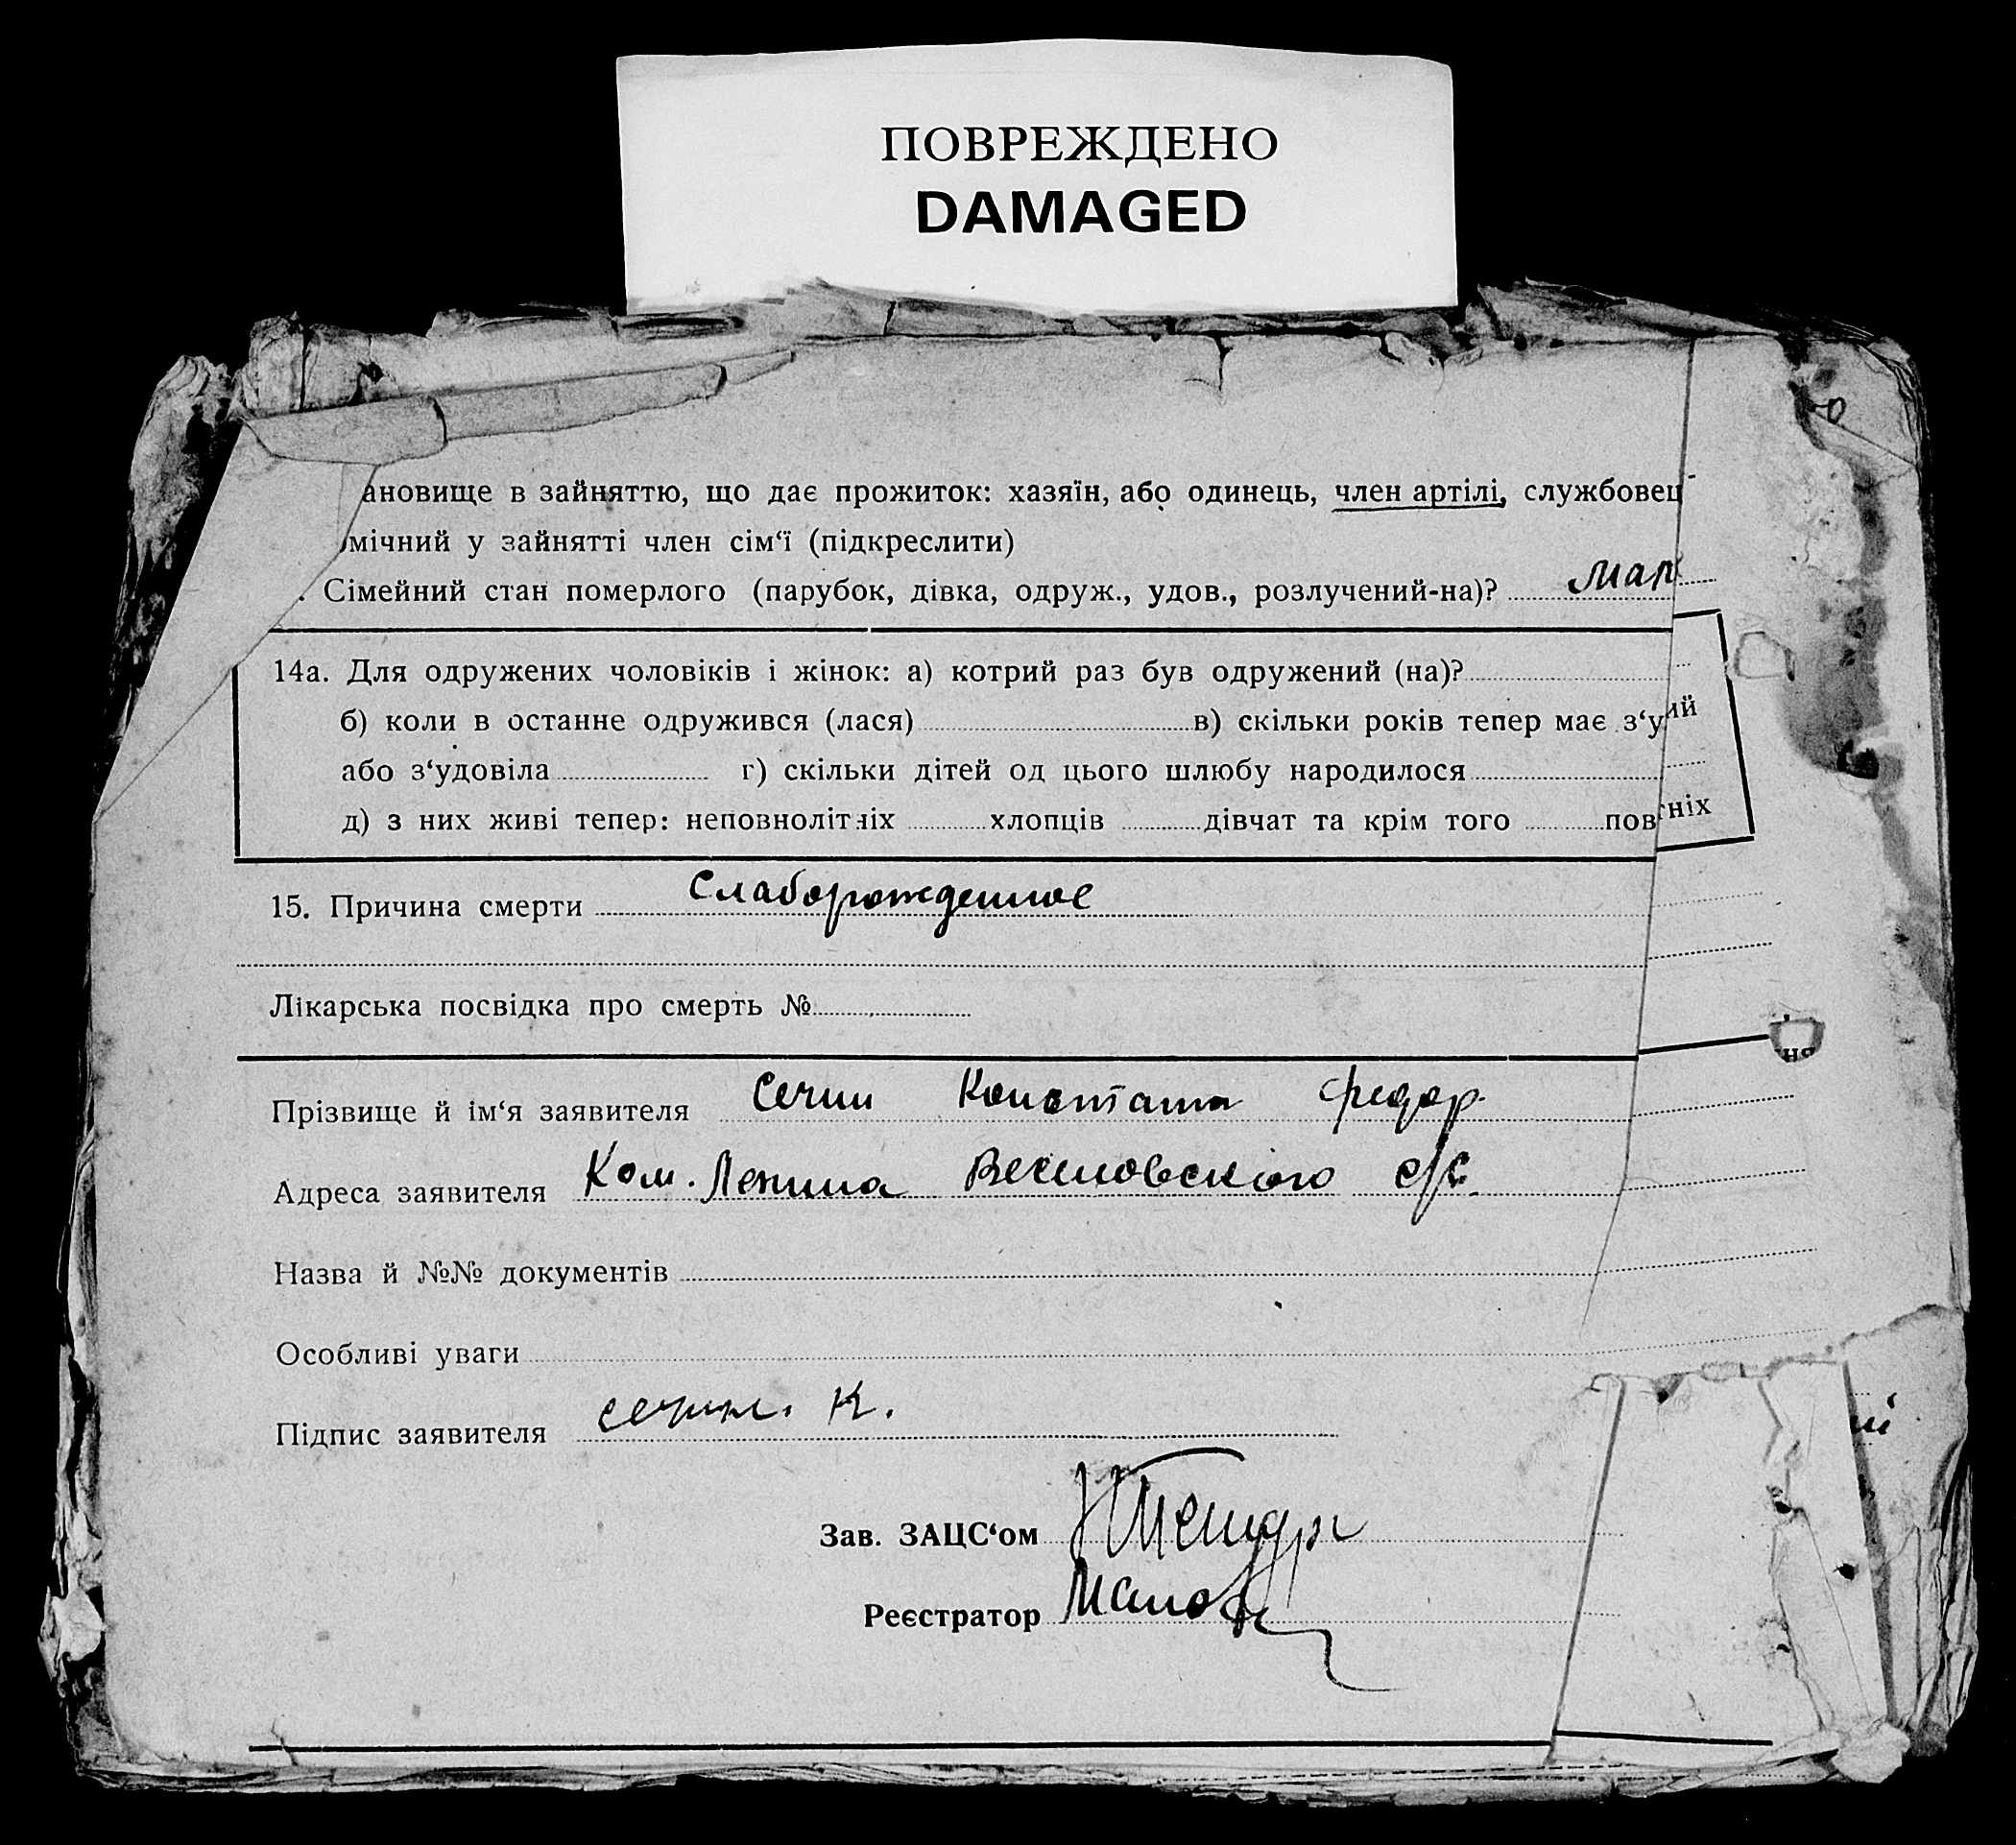 ПОВРЕЖДЕНО
DAMAGED
ановище в зайняттю, що дає прожиток: хазяїн, або одинець, член артілі, службовец
мічний у зайнятті член сім‘ї (підкреслити)
. Сімейний стан померлого (парубок, дівка, одруж., удов., розлучений-на)?
14а. Для одружених чоловіків і жінок: а) котрий раз був одружений (на)?
б) коли в останне одружився (лася) в) скільки років тепер має з‘у ий
або з‘удовіла г) скільки дітей од цього шлюбу народилося
д) з них живі тепер: неповнолітніх хлопців дівчат та крім того пов тніх
15. Причина смерти Слаборожденное
Лікарська посвідка про смерть №
ня
Прізвище й ім‘я заявителя Сечин Констатин Федор.
Адреса заявителя Ком. Ленина Веселовского с/с.
Назва й №№ документів
Особливі уваги
Підпис заявителя сечин. К.
Зав. ЗАЦС‘ом
Реєстратор